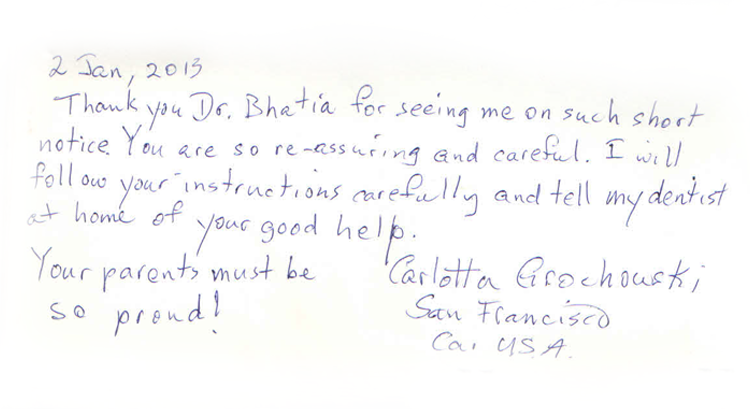 2 Jan, 2013
Thank you Dr. Bhatia for seeing me on such short
notice. You are so re-assuring and careful. I will
follow your instructions carefully and tell my dentist
at home of your good help.
Your parents must be
so proud!
Carlotta Grochowski
San Francisco
Ca. U.S.A.